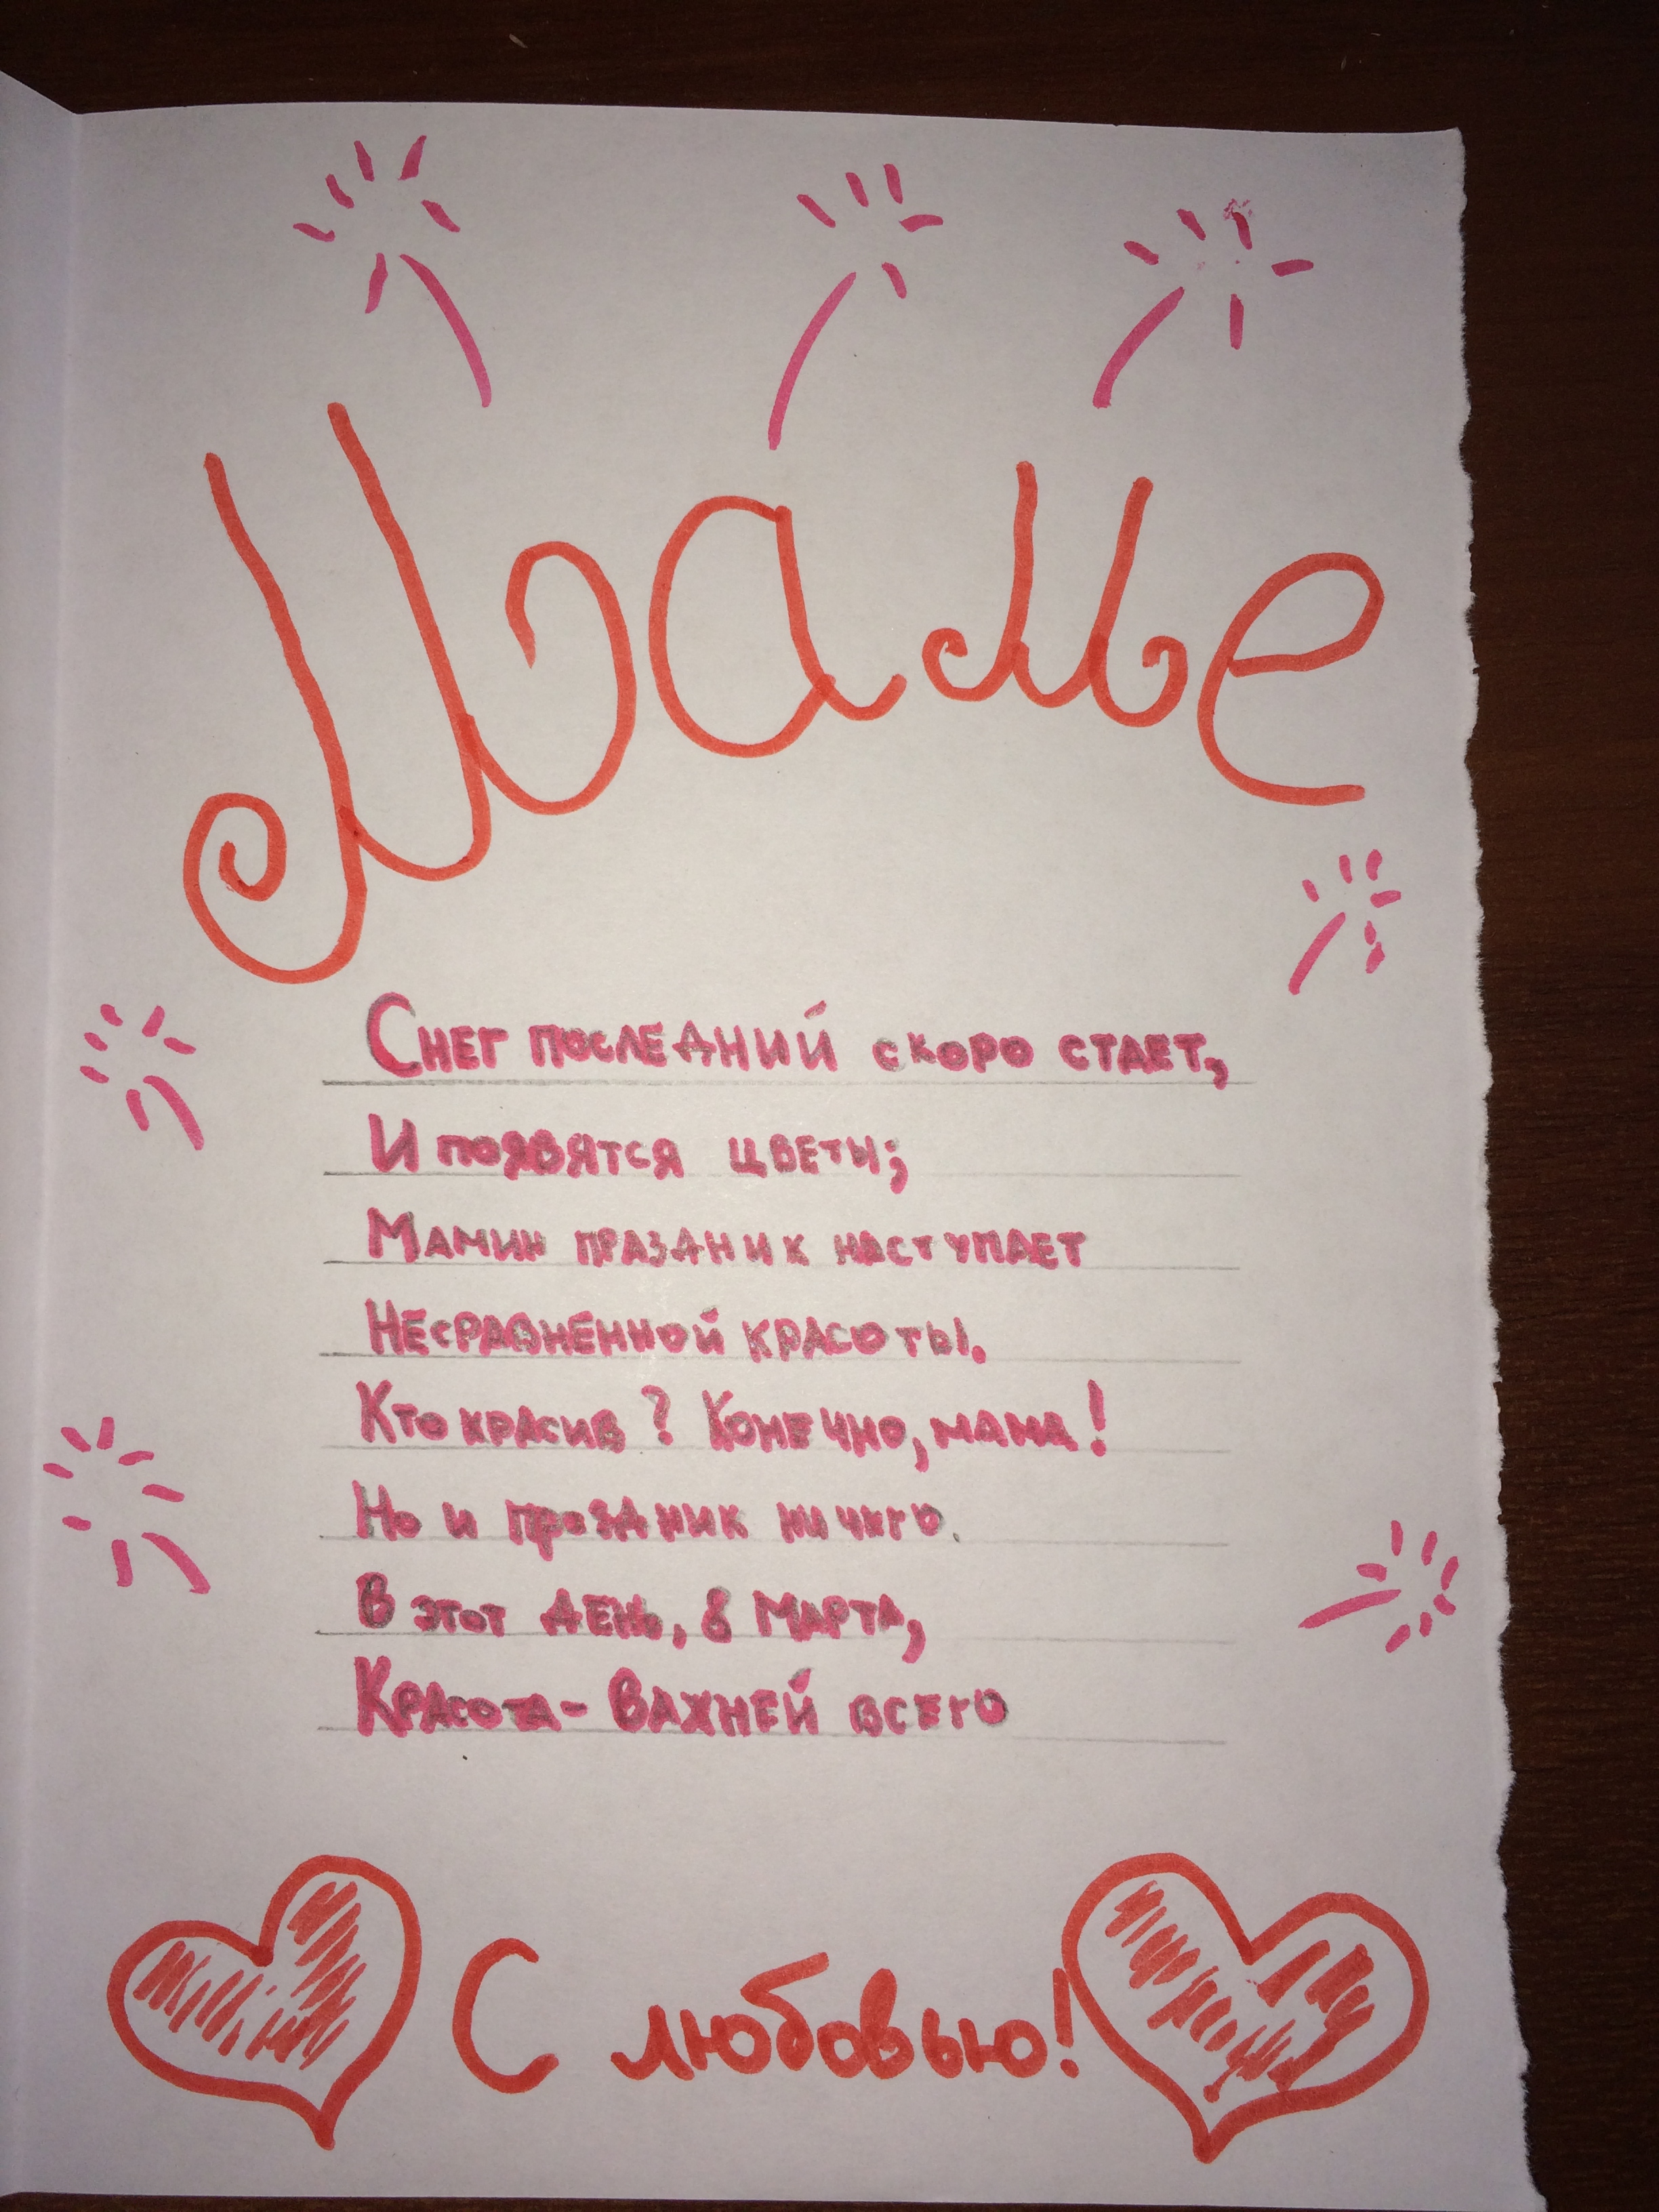 Маме
Снег последний скоро стает,
И появятся цветы;
Мамин праздник наступает
Несравненной красоты.
Кто красив? Конечно, мама!
Но и праздник ничего.
В этот день, 8 марта,
Красота - важней всего
С любовью!